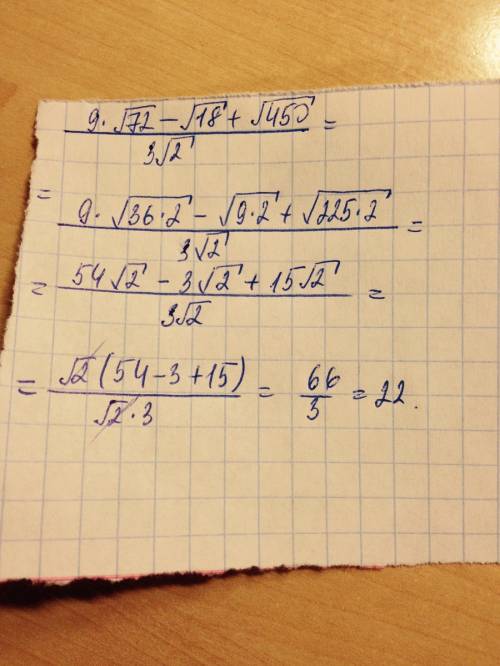 9·√72 − √18 + √450 =
3√2
=
9·√36·2 − √9·2 + √225·2 =
3√2
= 54√2 − 3√2 + 15√2 =
3√2
= √2 (54−3+15) = 66 = 22.
√2·3 3